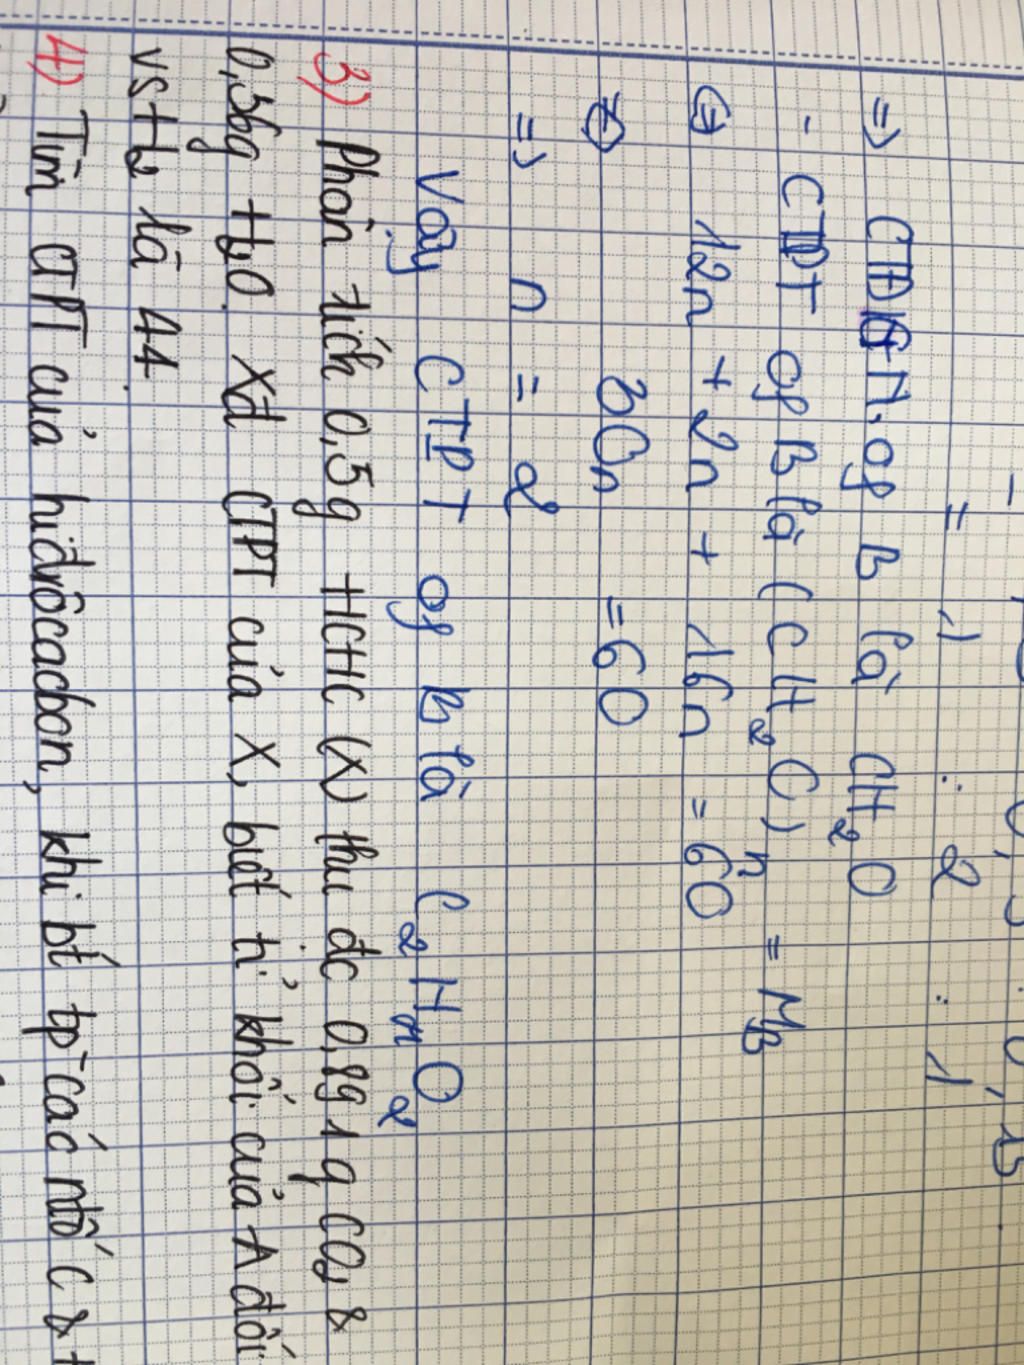 = 1 : 2 : 1
=> CTĐGN of B là CH2O
- CTPT of B là (CH2O)n = MB
⇔ 12n + 2n + 16n = 60
⇔ 30n = 60
=> n = 2
Vậy CTPT of B là C2H4O2
3) Phân tích 0,5g HCHC (X) thu đc 0,891g CO2 &
0,36g H2O. Xđ CTPT của X, biết tỉ khối của A đối
vs H2 là 44.
4) Tìm CTPT của hiđrôcacbon, khi bt tp các ntố C &